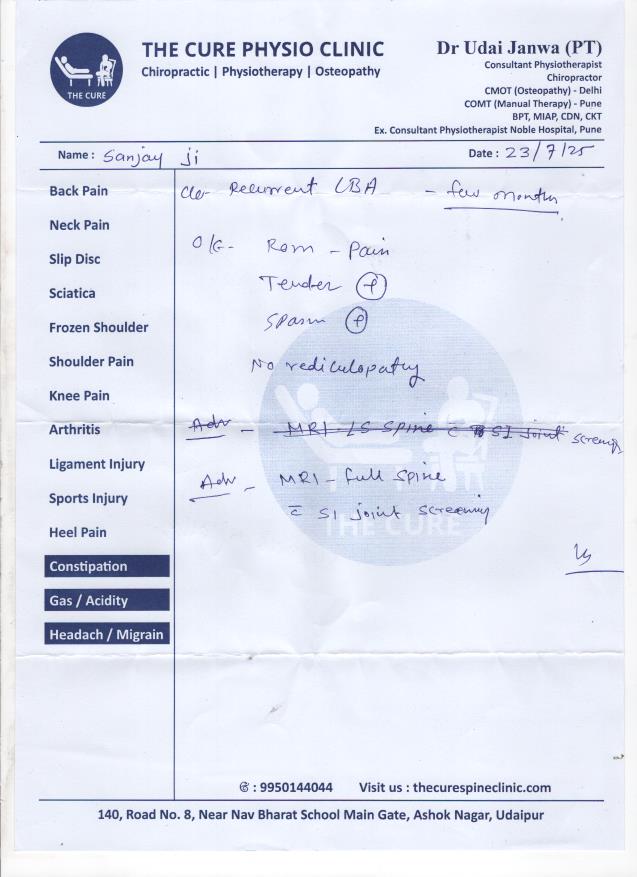 THE CURE
THE CURE PHYSIO CLINIC
Chiropractic | Physiotherapy | Osteopathy
Dr Udai Janwa (PT)
Consultant Physiotherapist
Chiropractor
CMOT (Osteopathy) - Delhi
COMT (Manual Therapy) - Pune
BPT, MIAP, CDN, CKT
Ex. Consultant Physiotherapist Noble Hospital, Pune
Name : Sanjay ji
Date : 23/7/25
Back Pain
Neck Pain
Slip Disc
Sciatica
Frozen Shoulder
Shoulder Pain
Knee Pain
Arthritis
Ligament Injury
Sports Injury
Heel Pain
Constipation
Gas / Acidity
Headach / Migrain
Recurrent LBA - few months
Rom - Pain
Tender +
Spasm +
No rediculopathy
Adv - MRI - LS Spine c̄ SI joint screening
Adv - MRI - full spine
c̄ SI joint screening
THE CURE
: 9950144044 Visit us : thecurespineclinic.com
140, Road No. 8, Near Nav Bharat School Main Gate, Ashok Nagar, Udaipur